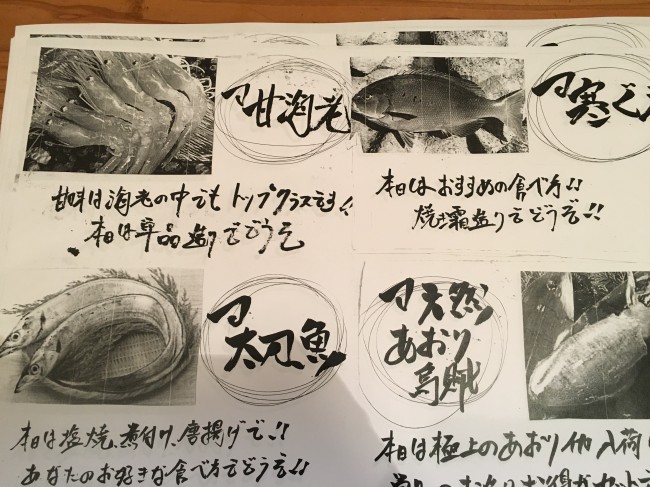 マ甘海老
甘味は海老の中でもトップクラスです!!
本日は単品造りでどうぞ
マ寒ぐ
本日はおすすめの食べ方!!
焼き霜造りでどうぞ!!
マ太刀魚
本日は塩焼、煮付け、唐揚げで!!
あなたのお好きな食べ方でどうぞ!!
マ天然
あおり
烏賊
本日は極上のあおりイカ入荷